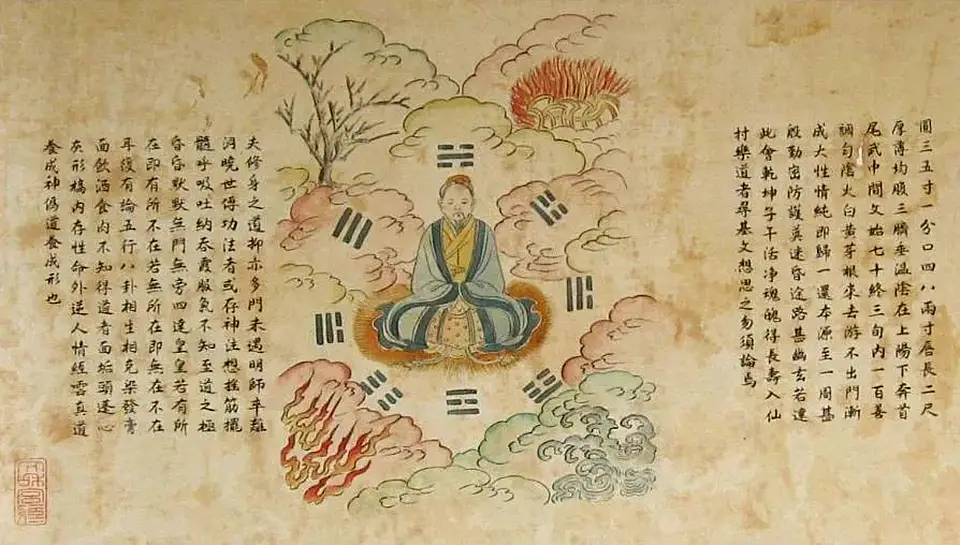 圓三五寸一分口四八兩寸唇長二尺
厚薄均腹三臍垂溫陰在上陽下奔首
尾武中間文始七十終三旬內一百善
調勻陰火白黃芽根來去游不出門漸
成大性情純即歸一還本源至一周甚
殷勤密防護莫迷昏途路甚幽玄若達
此會乾坤子午活淨魂魄得長壽入仙
村樂道者尋基文想思之勿須論焉
夫修身之道抑亦多門未遇明師卒難
洞曉世傳功法者或存神注想挫筋擺
髓呼吸吐納吞霞服氣不知至道之極
昏昏默默無門無旁四達皇皇若有所
在即有所不在若無所在即無在不在
耳復有論五行八卦相生相克染發膏
面飲酒食肉不知得道者面垢頭蓬心
灰形槁內存性命外逆人情經雲真道
養成神偽道養成形也